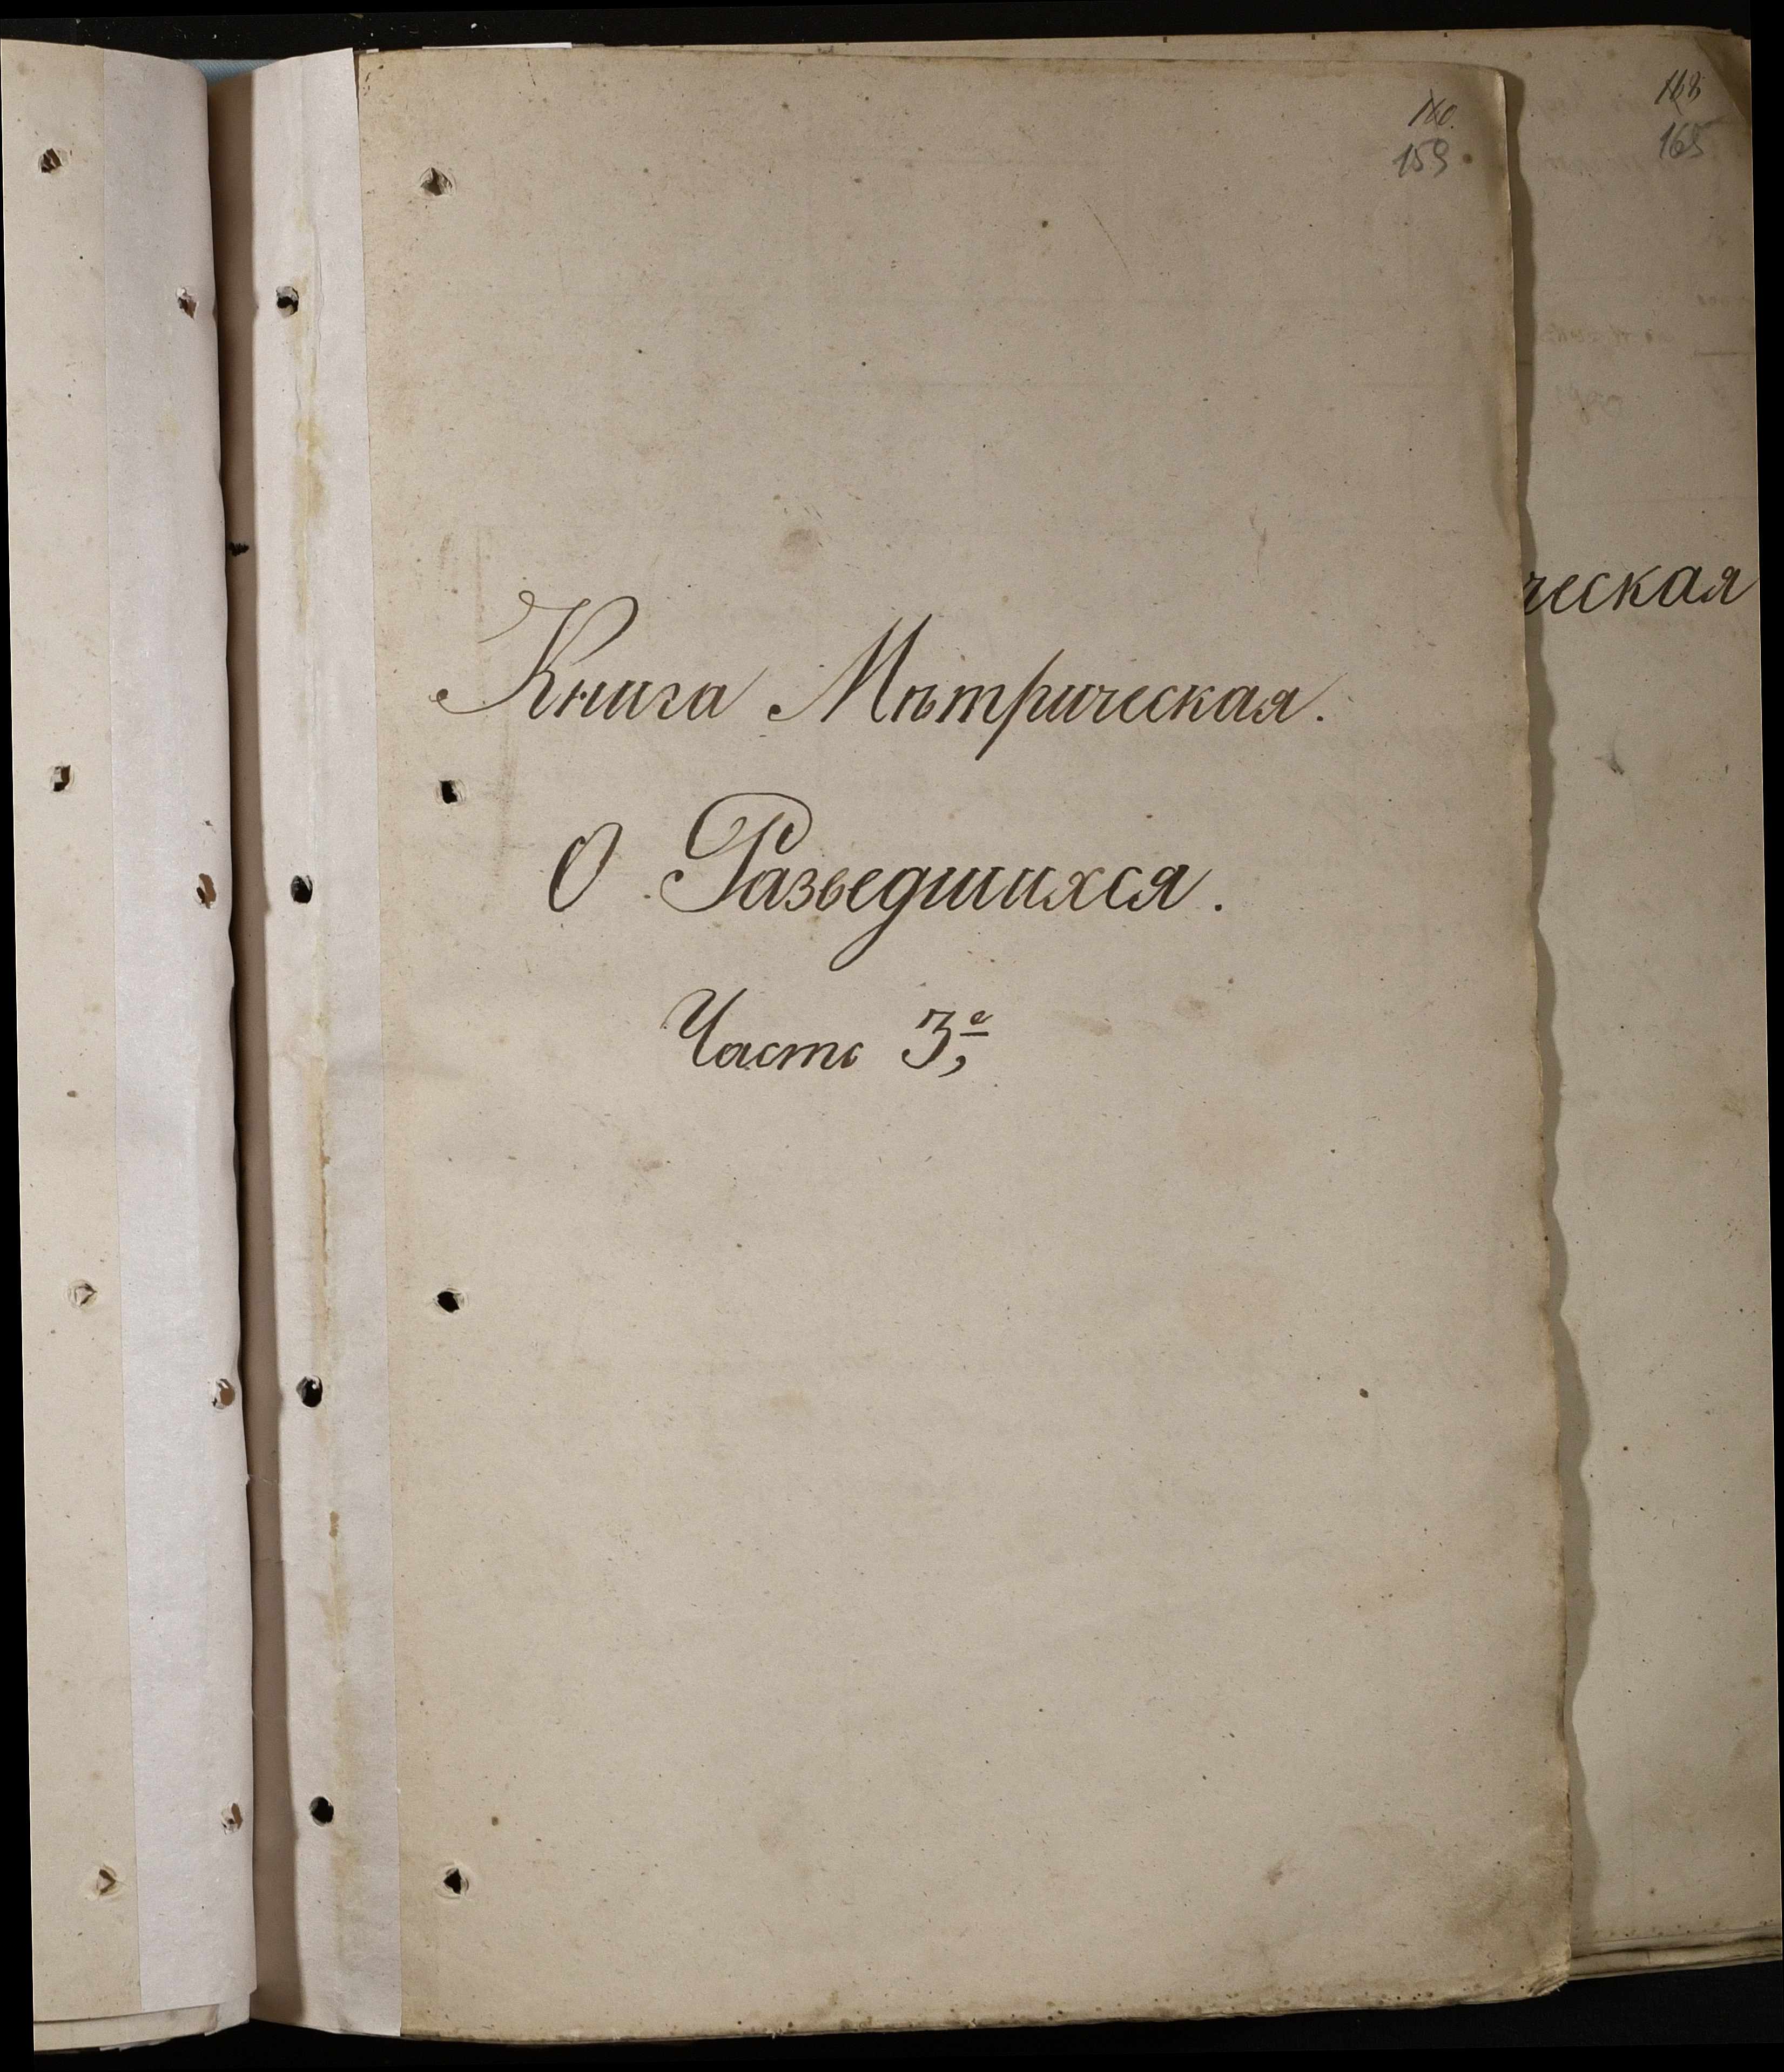 160.
159
168
165
ческая
Книга Мѣтрическая.
О Разведшихся.
Часть 3е